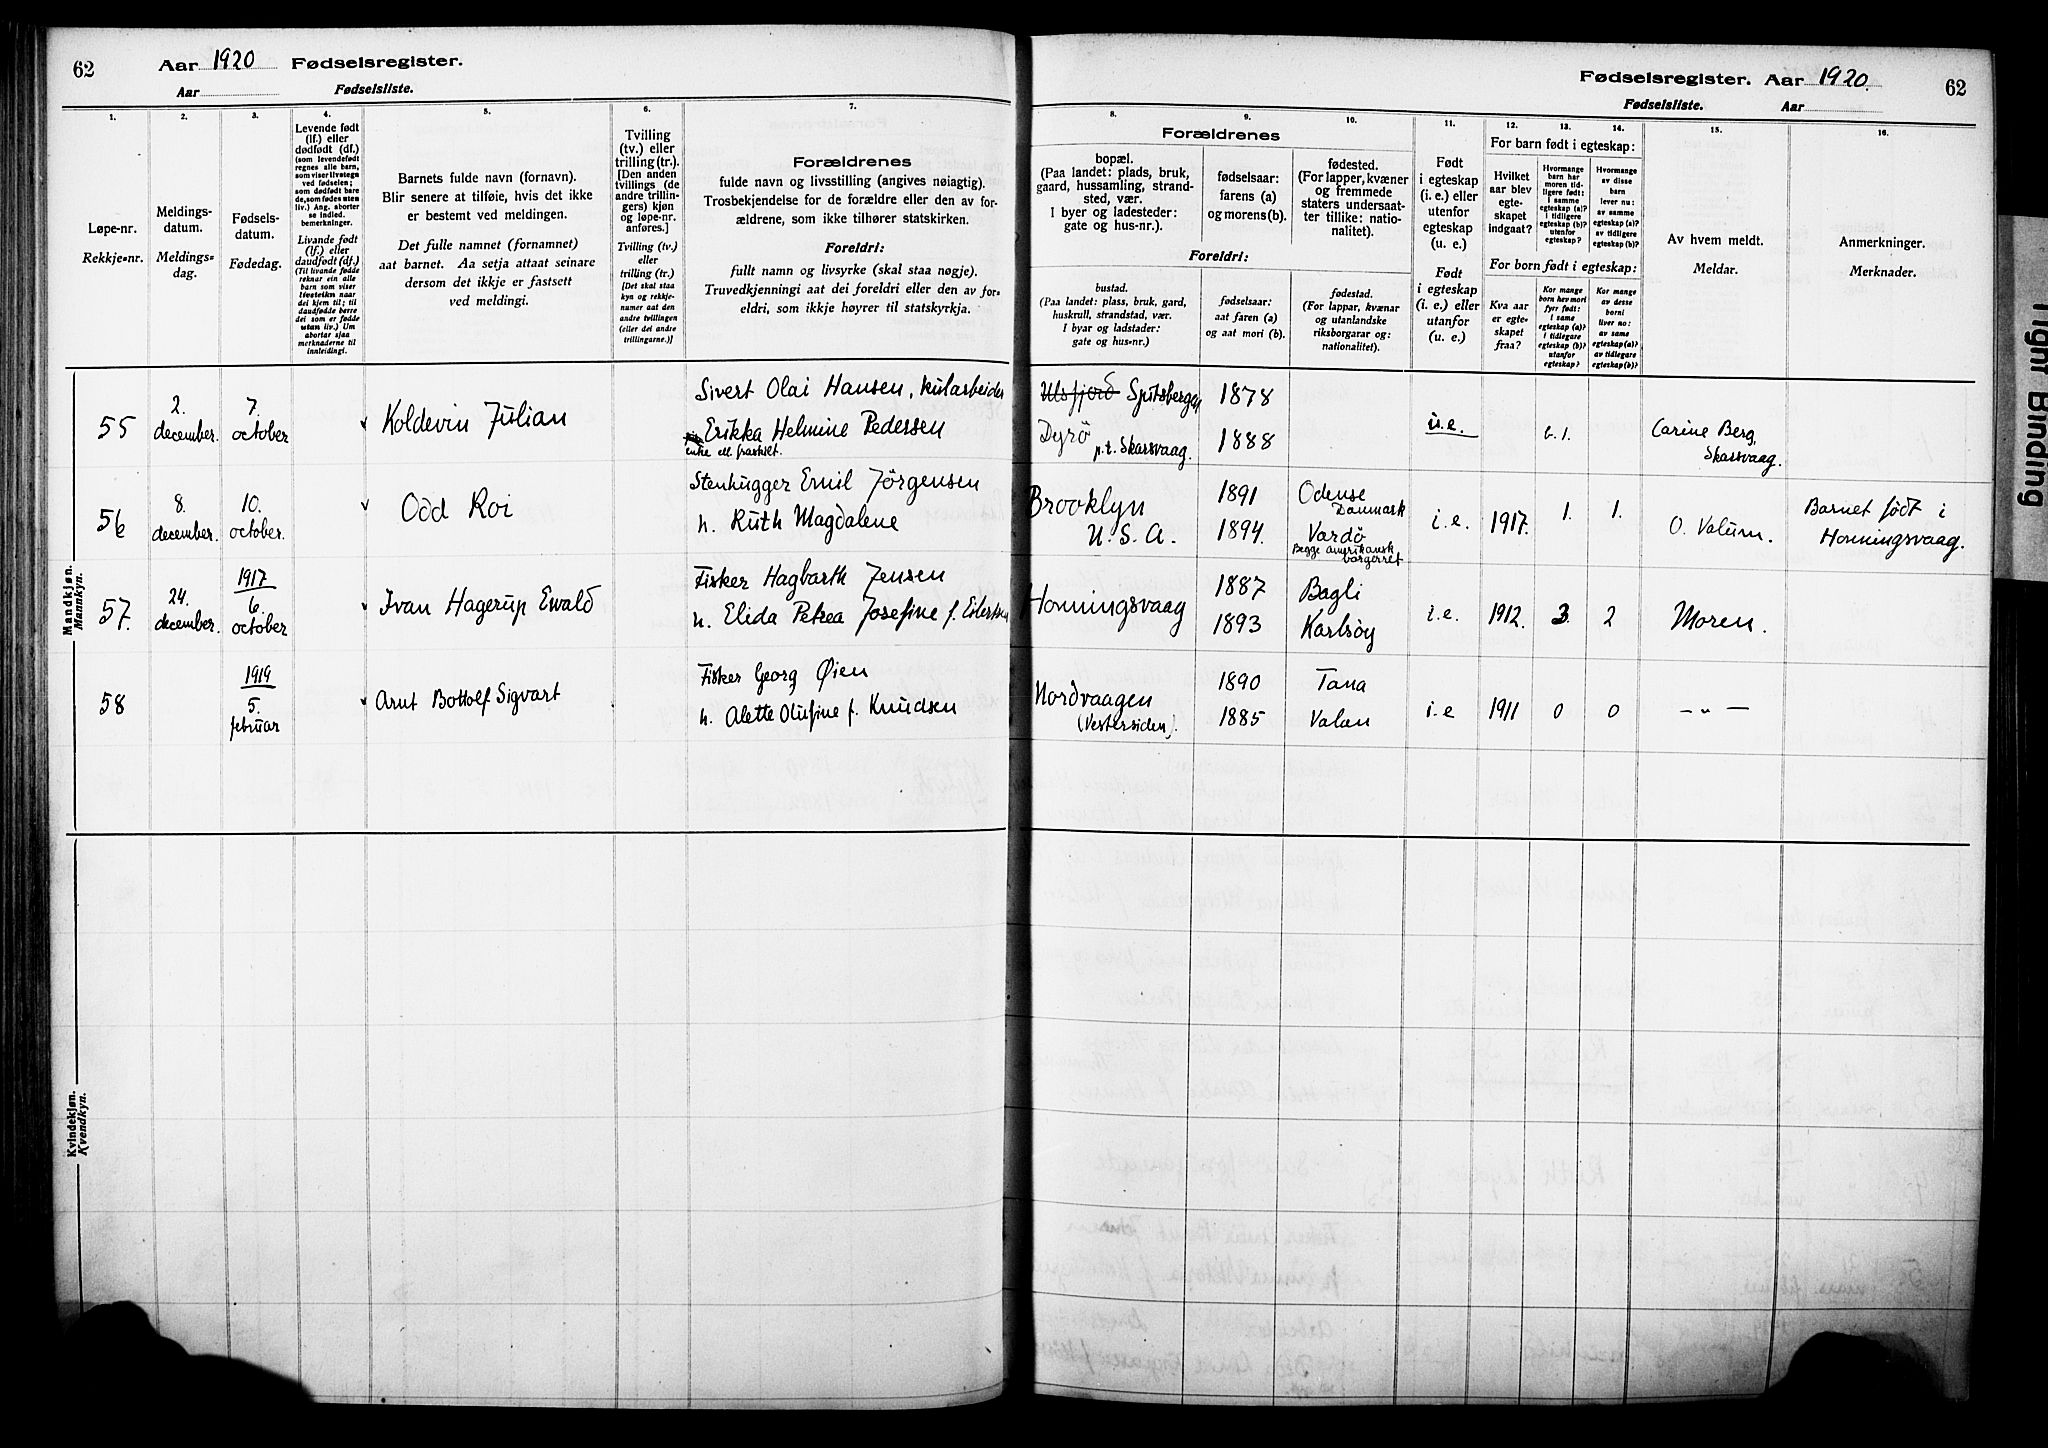 62 Aar 1920 Fødselsregister.
Aar Fødselsliste.
Fødselsregister. Aar 1920. 62
Fødselsliste. Aar
1. 2. 3. 4. 5. 6. 7.
Løpe-nr.
Rekkje-nr.
Meldings-
datum.
Meldings-
dag.
Fødsels-
datum.
Fødedag.
Levende født
(lf.) eller
dødfødt (df.)
(som levendefødt
regnes alle barn,
som viser livstegn
ved fødselen;
som dødfødt bare
de, som fødes uten
liv.) Ang. aborter
se indled.
bemerkninger.
Livande født
(lf.) eller
daudfødt (df.)
(Til livande fødde
reknar ein alle
barn som viser
livsteikn naar
dei kjem til; til
daudfødde berre
dei som er fødde
utan liv.) Um
abortar sjaa
merknaderne til
innleidingi.
Barnets fulde navn (fornavn).
Blir senere at tilføie, hvis det ikke
er bestemt ved meldingen.
Det fulle namnet (fornamnet)
aat barnet. Aa setja attaat seinare
dersom det ikkje er fastsett
ved meldingi.
Tvilling
(tv.) eller
trilling (tr.).
[Den anden
tvillings (de
andre trillin-
gers) kjøn
og løpe-nr.
anføres.]
Tvilling (tv.)
eller
trilling (tr.)
[Det skal staa
kyn og rekkje-
numer aat den
andre tvillingen
(eller dei andre
trillingarne.)]
Forældrenes
fulde navn og livsstilling (angives nøiagtig).
Trosbekjendelse for de forældre eller den av for-
ældrene, som ikke tilhører statskirken.
Foreldri:
fullt namn og livsyrke (skal staa nøgje).
Truvedkjenningi aat dei foreldri eller den av for-
eldri, som ikkje høyrer til statskyrkja.
8. 9. 10. 11. 12. 13. 14. 15. 16.
Forældrenes
bopæl.
(Paa landet: plads, bruk,
gaard, hussamling, strand-
sted, vær.
I byer og ladesteder:
gate og hus-nr.).
fødselsaar:
farens (a)
og morens (b).
fødested.
(For lapper, kvæner
og fremmede
staters undersaat-
ter tillike: natio-
nalitet).
Foreldri:
bustad.
(Paa landet: plass, bruk, gard,
huskrull, strandstad, vær.
I byar og ladstader:
gate og hus-nr.)
fødselsaar:
aat faren (a)
og aat mori (b).
fødestad.
(For lappar, kvænar
og utanlandske
riksborgarar og:
nationalitet).
Født
i egteskap
(i. e.) eller
utenfor
egteskap
(u. e.)
Født
i egteskap
(i. e.) eller
utanfor
(u. e.)
For barn født i egteskap:
Hvilket
aar blev
egte-
skapet
indgaat?
Hvormange
barn har
moren tid-
ligere født:
i samme
egteskap (a)?
i tidligere
egteskap (b)?
utenfor
egteskap?
Hvormange
av disse
barn
lever nu:
av samme
egteskap (a)?
av tidligere
egteskap (b)?
For born født i egteskap:
Kva aar
er egte-
skapet
fraa?
Kor mange
born hev mori
fyrr født:
i same
egteskap (a)?
i tidlegare
egteskap (b)?
utanfor
egteskap?
Kor mange
av desse
borni
liver no:
av same
egteskap (a)?
av tidlegare
egteskap (b)?
Av hvem meldt.
Meldar.
Anmerkninger.
Merknader.
Mandkjøn.
Mannkyn.
55 2. december. 7. october Koldevin Julian
Sivert Olai Hansen, kularbeider
Erikka Helmine Pedersen
enke ell. fraskilt.
Ulsfjord Spitsbergen 1878
Dyrö p.t. Skarsvaag. 1888
i.e. 1. Carine Berg, Skarsvaag.
56 8. december. 10. october. Odd Roi
Stenhugger Emil Jörgensen
h. Ruth Magdalene
Brooklyn U.S.A. 1891 Odense Danmark
1894. Vardö
Begge amerikansk borgerret
i.e. 1917. 1. 1. O. Valum. Barnet født i Honningsvaag.
57. 24. december. 1917 6. october Ivan Hagerup Ewald
Fisker Hagbarth Jensen
h. Elida Petrea Josefine f. Eilertsen
Honningsvaag 1887 Bagli
1893 Karlsöy
i.e. 1912. 3. 2 Moren.
58 1919 5. februar Arnt Bottolf Sigvart
Fisker Georg Øien
h. Alette Olufine f. Knudsen
Nordvaagen (Vestersiden). 1890 Tana
1885 Valan
i.e 1911 0 0 – " –
Kvindekjøn.
Kvendkyn.
Tight Binding